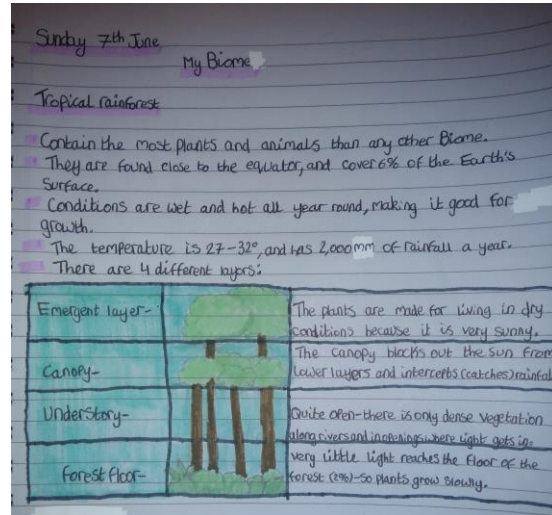 Sunday 7th June
My Biome
Tropical rainforest
Contain the most plants and animals than any other Biome.
They are found close to the equator, and cover 6% of the Earth's
Surface.
Conditions are wet and hot all year round, making it good for
growth.
The temperature is 27-32°, and has 2,000mm of rainfall a year.
There are 4 different layors:
Emergent layer-
The plants are made for living in dry
conditions because it is very sunny.
Canopy-
The canopy blocks out the sun from
lower layers and intercepts (catches) rainfal
Understory-
Quite open-there is only dense vegetation
along rivers and in openings where light gets in.
forest floor-
very little light reaches the floor of the
forest (2%)-so plants grow slowly.